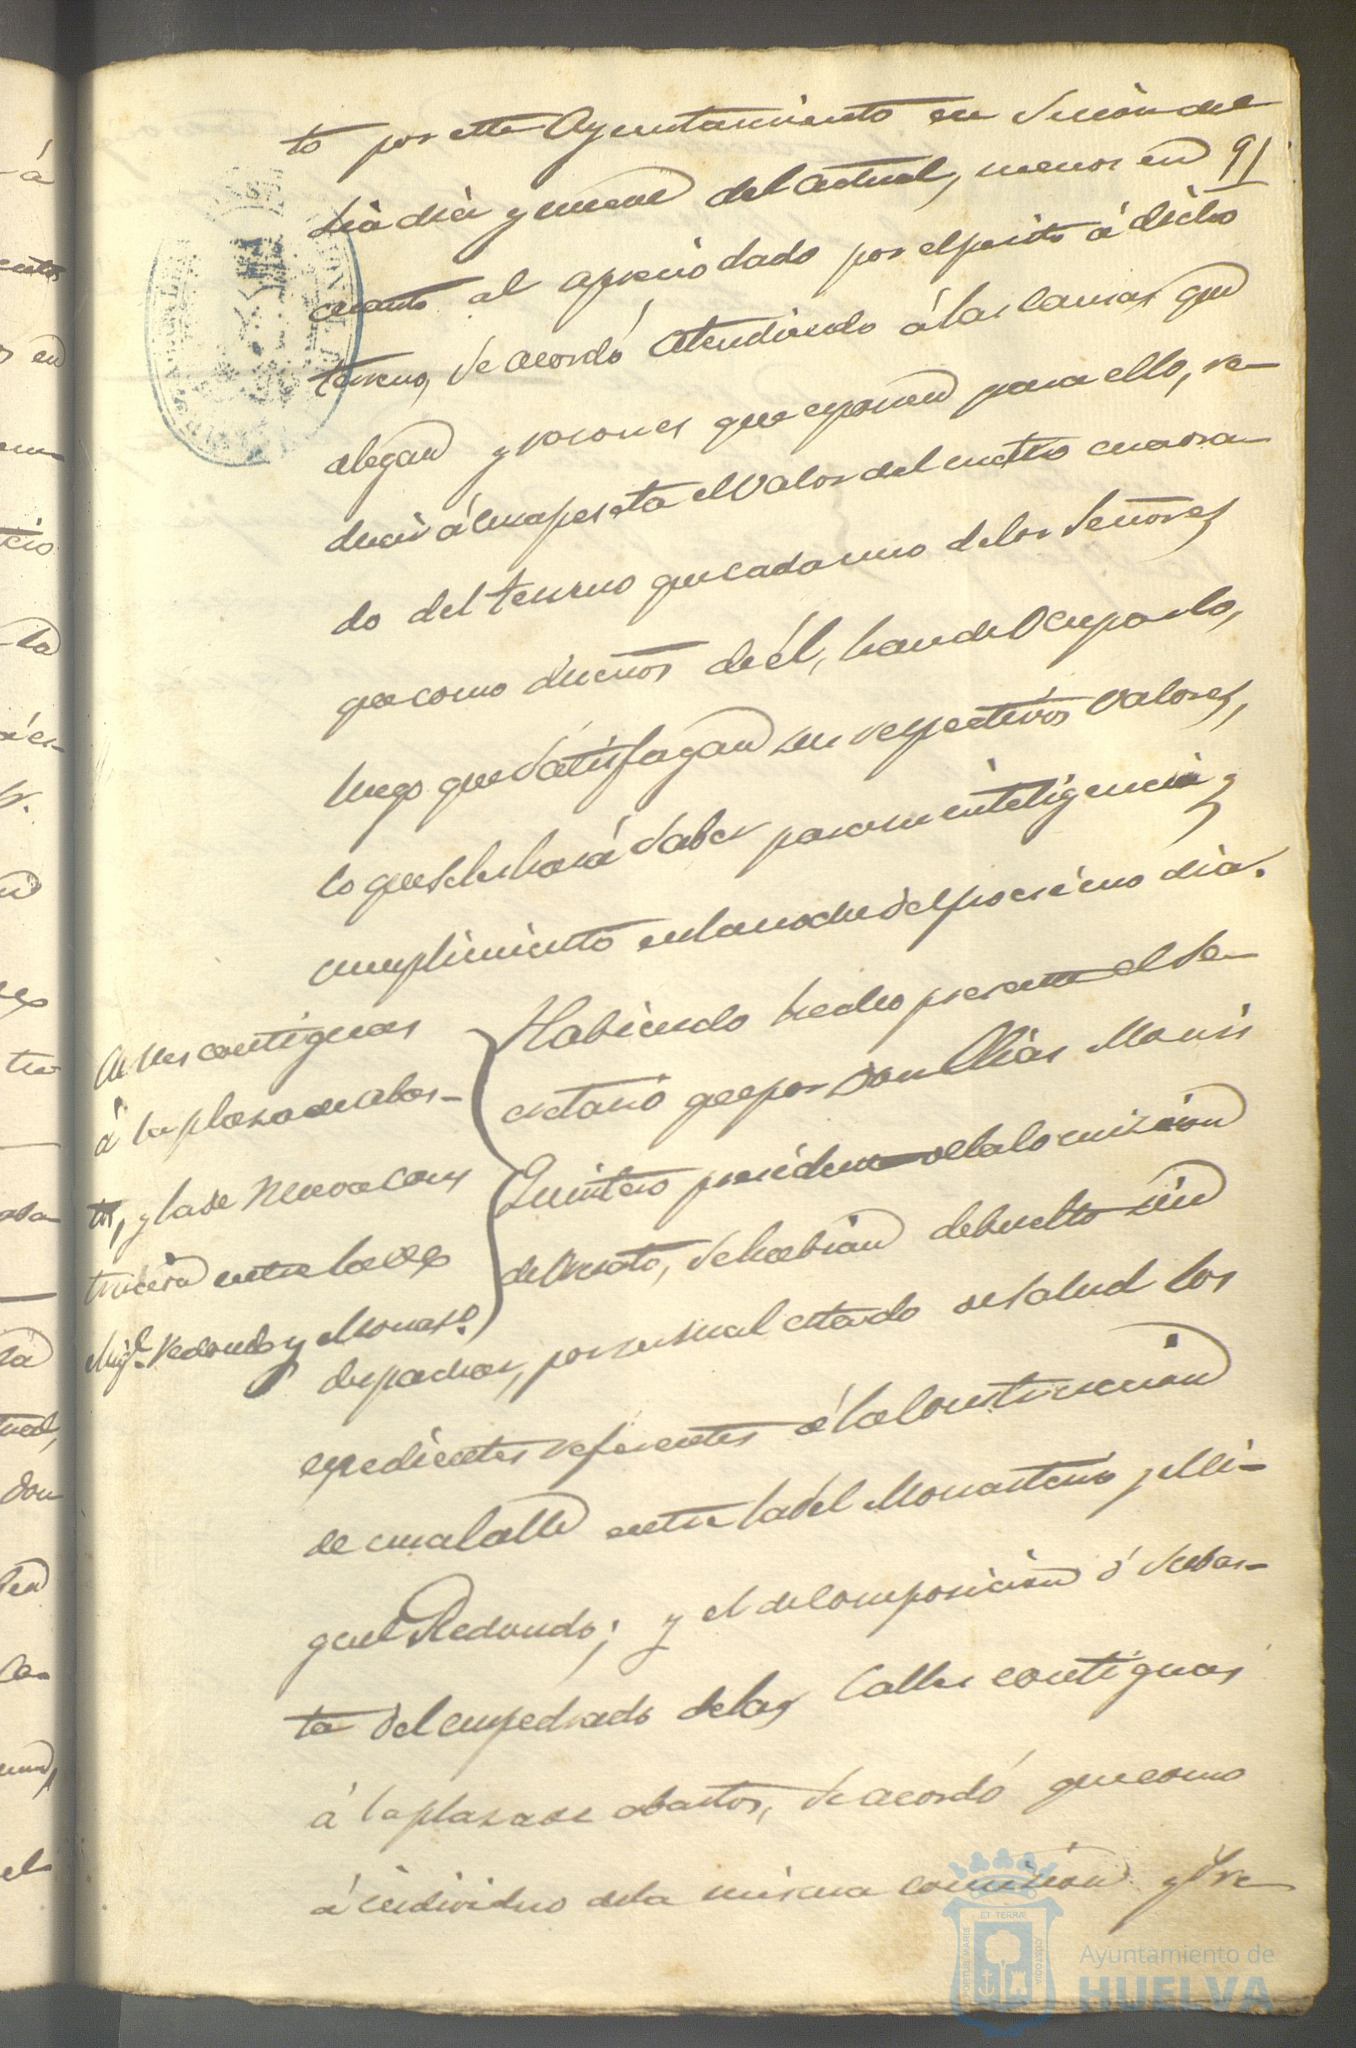 to por este Ayuntamiento en Sesion del
dia diez y nueve del actual, menos en
91
cuanto al aprecio dado por el perito á dicho
terreno, Se acordó atendiendo á las causas que
alegan y razones que esponen para ello, re-
ducir á una peseta el valor del metro cuadra-
do del terreno que cada uno de los Señores
que como dueños de él, han de Ocuparlo,
luego que Satisfagan sus respectivos Valores,
lo que se les hará Saber para su inteligencia y
cumplimiento en la noche del procsimo dia.
Calles contiguas
á la plaza de abas-
tos, y la de Nueva cons
truccion entre las de
Migl. Redondo y Monasto.
Habiendo hecho presente el Se-
cretario que por Don Elias Moris
Quintero presidente de la Comision
de Ornato, Se habian debuelto sin
despachar, por su mal estado de salud los
espedientes referentes á la Construccion
de una Calle entre la del Monasterio y Mi-
guel Redondo; y el de Composicion ó Subas-
ta del empedrado de las Calles contiguas
á la plaza de abastos, Se acordó que como
á individuo de la misma comision y Te
Ayuntamiento de
HUELVA
PORTUS MARIS
ET TERRAE
CUSTODIA